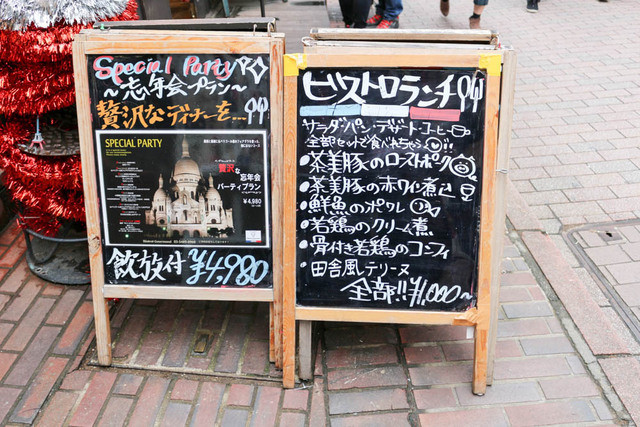 Special Party
~忘年会プラン~
贅沢なディナーを…
SPECIAL PARTY
贅沢な
忘年会
パーティプラン
¥4,980
飲放付 ¥4,980
ビストロランチ
サラダ・パン・デザート・コーヒー
全部セットで食べれちゃう
・茶美豚のローストポーク
・茶美豚の赤ワイン煮込
・鮮魚のポワレ
・若鶏のクリーム煮
・骨付き若鶏のコンフィ
・田舎風テリーヌ
全部!!¥1,000~